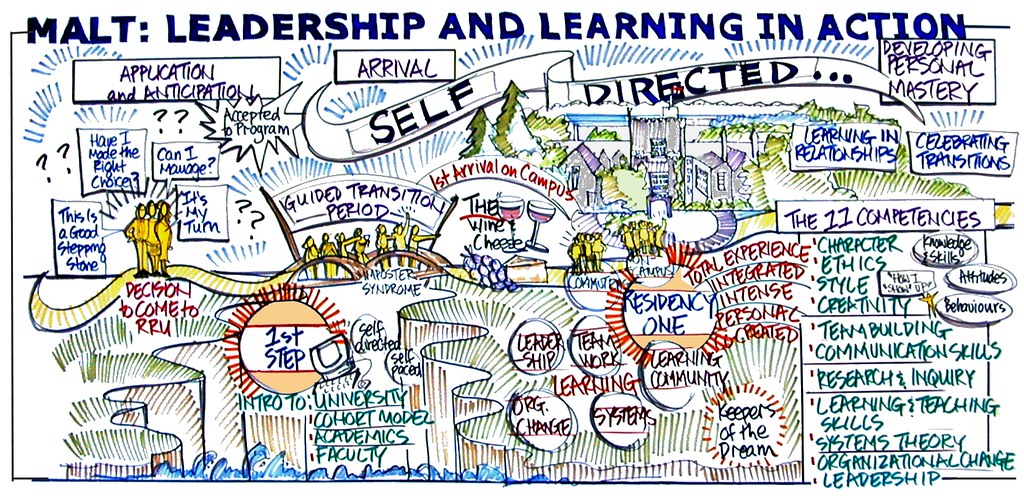 MALT: LEADERSHIP AND LEARNING IN ACTION
APPLICATION
and ANTICIPATION
ARRIVAL
SELF DIRECTED...
DEVELOPING
PERSONAL
MASTERY
Accepted
to Program
? ?
? ?
Have I
Made the
Right
Choice?
Can I
Manage?
It's
My
Turn
? ?
This Is
a Good
Stepping
Stone
DECISION
to COME to
RRU
GUIDED TRANSITION
PERIOD
IMPOSTER
SYNDROME
1st Arrival on Campus
THE
Wine &
Cheese
LEARNING IN
RELATIONSHIPS
CELEBRATING
TRANSITIONS
1st
STEP
self
directed
self
paced
INTRO TO:
UNIVERSITY
COHORT MODEL
ACADEMICS
FACULTY
COMMUTER
CAMPUS
RESIDENCY
ONE
TOTAL EXPERIENCE
INTEGRATED
INTENSE
PERSONAL
LEADER
SHIP
TEAM
WORK
LEARNING
COMMUNITY
LEARNING
ORG.
CHANGE
SYSTEMS
Keepers
of the
Dream
THE 11 COMPETENCIES
CHARACTER
ETHICS
STYLE
CREATIVITY
Knowledge
& Skills
"HOW I
SHOW UP"
Attitudes
Behaviours
TEAM BUILDING
COMMUNICATION SKILLS
RESEARCH & INQUIRY
LEARNING & TEACHING
SKILLS
SYSTEMS THEORY
ORGANIZATIONAL CHANGE
LEADERSHIP